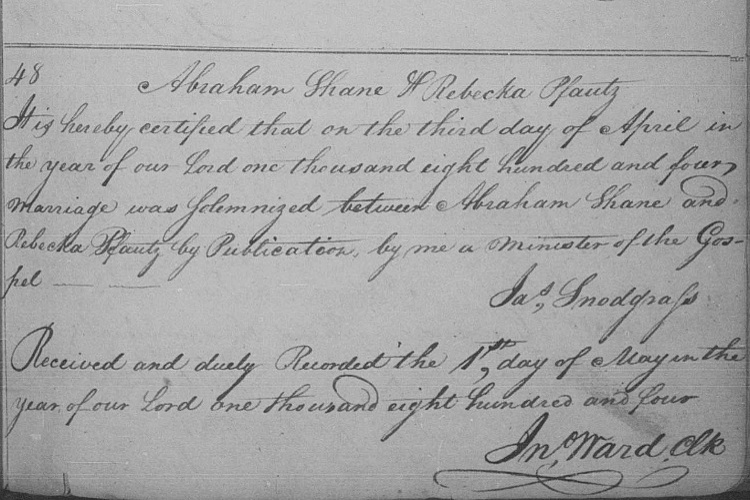 48
Abraham Shane & Rebecka Pfautz
It is hereby certified that on the third day of April in
the year of our Lord one thousand eight hundred and four,
marriage was Solemnized between Abraham Shane and
Rebecka Pfautz by Publication, by me a Minister of the Gos-
pel — —
Jas. Snodgrass
Received and duely Recorded the 1st, day of May in the
year of our Lord one thousand eight hundred and four
Jno. Ward, Clk